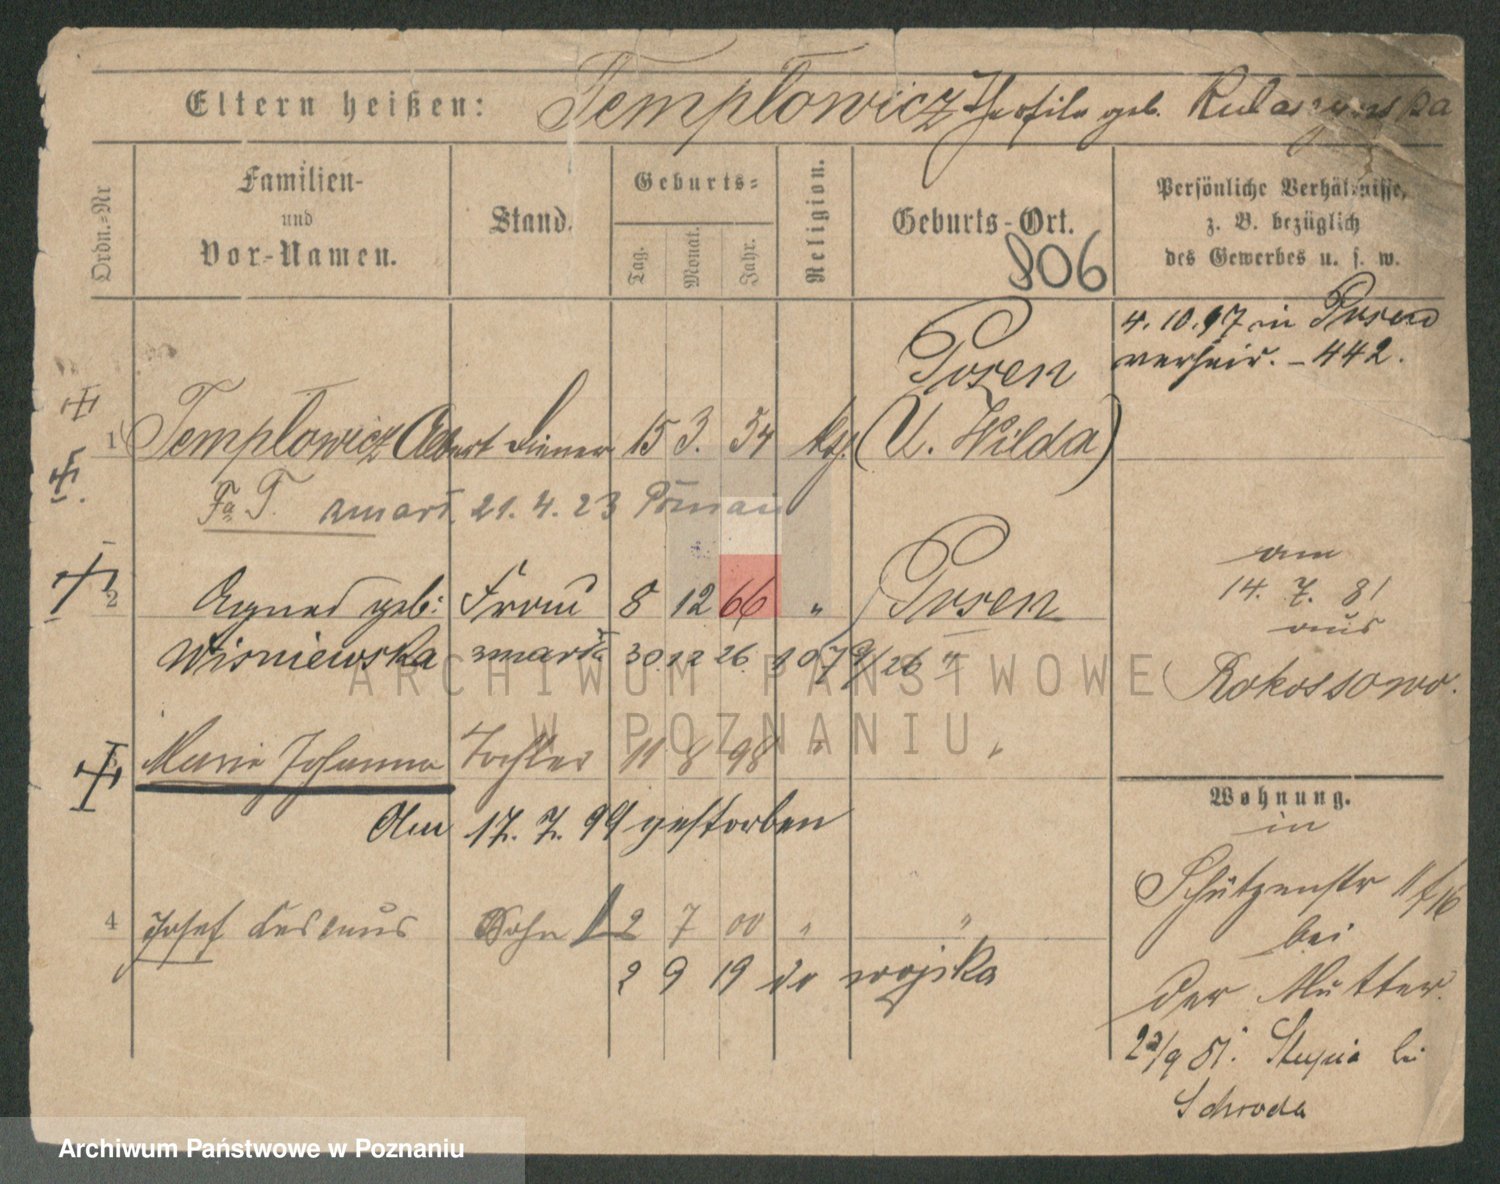 Eltern heißen: Templowicz Theofila geb.
Ordn.-Nr
Familien-
und
Vor-Namen.
Stand.
Geburts-
Tag.
Monat.
Jahr.
Religion.
Geburts-Ort.
806
Persönliche Verhältnisse,
z. B. bezüglich
des Gewerbes u. s. w.
4. 10. 97 in Posen
verheir. - 442.
Posen
1 Templowicz Albert Diener 15 3. 54 ktz. (U. Wilda)
Fa T. zmarł 21. 4. 23 Poznań
2 Agnes geb: Frau 8 12 66 " Posen
Wiśniewska zmarła 30.12 26. 1079/26 "
am
14. 7. 81
aus
Rokossowo.
Marie Johanna Tochter 11 8 98 " "
Am 17. 7. 99 gestorben
Wohnung.
in
Schützenstr 11/16
bei
der Mutter.
4 Josef Sohn 12 7 00 " "
2 9 19 do wojska
22/9 81. Slupia bei
Schroda
ARCHIWUM PAŃSTWOWE
W POZNANIU
Archiwum Państwowe w Poznaniu